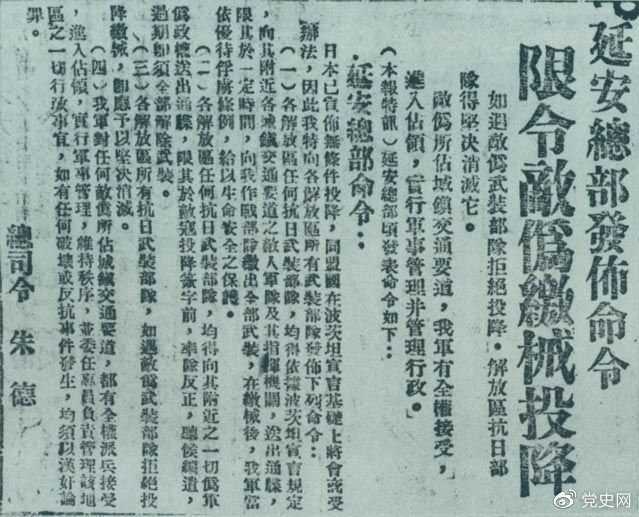 延安總部發佈命令
限令敵僞繳械投降
如遇敵僞武裝部隊拒絕投降·解放區抗日部
隊得堅決消滅它。
敵僞所佔城鎮交通要道，我軍有全權接受，
進入佔領，實行軍事管理并管理行政。
（本報特訊）延安總部頃發表命令如下：
延安總部命令：
日本已宣佈無條件投降，同盟國在波茨坦宣言基礎上將會商受
辦法，因此我特向各解放區所有武裝部隊發佈下列命令：
（一）各解放區任何抗日武裝部隊，均得依據波茨坦宣言規定
，向其附近各城鎮交通要道之敵人軍隊及其指揮機關，送出通牒，
限其於一定時間，向我作戰部隊繳出全部武裝，在繳械後，我軍當
依優待俘虜條例，給以生命安全之保護。
（二）各解放區任何抗日武裝部隊，均得向其附近之一切僞軍
僞政權送出通牒，限其於敵寇投降簽字前，率隊反正，聽候編遣，
過期即須全部解除武裝。
（三）各解放區所有抗日武裝部隊，如遇敵僞武裝部隊拒絕投
降繳械，即應予以堅決消滅。
（四）我軍對任何敵僞所佔城鎮交通要道，都有全權派兵接受
，進入佔領，實行軍事管理，維持秩序，並委任專員負責管理該地
區之一切行政事宜，如有任何破壞或反抗事件發生，均須以漢奸論
罪。
總司令 朱德
党史网